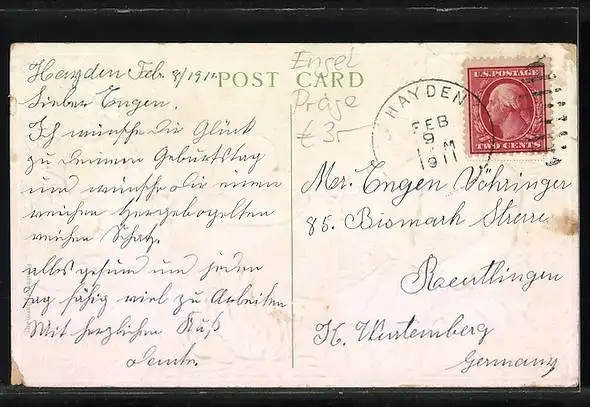 Hayden Feb. 8/1911
POST CARD
Lieber Eugen.
Ich wünsche Dir Glück
zu deinem Geburtstag
und wünsche dir einen
weichen
weichen Schatz.
alles gesund und jeden
tag häfig viel zu Arbeiten
Mit herzlichen Kuß
Engel
Präge
€ 3-
HAYDEN
FEB
9
M
1911
U.S. POSTAGE
TWO CENTS
Mr. Eugen Vöhringer
85. Bismark Strasse
Raeutlingen
K. Wurtemberg
Germany